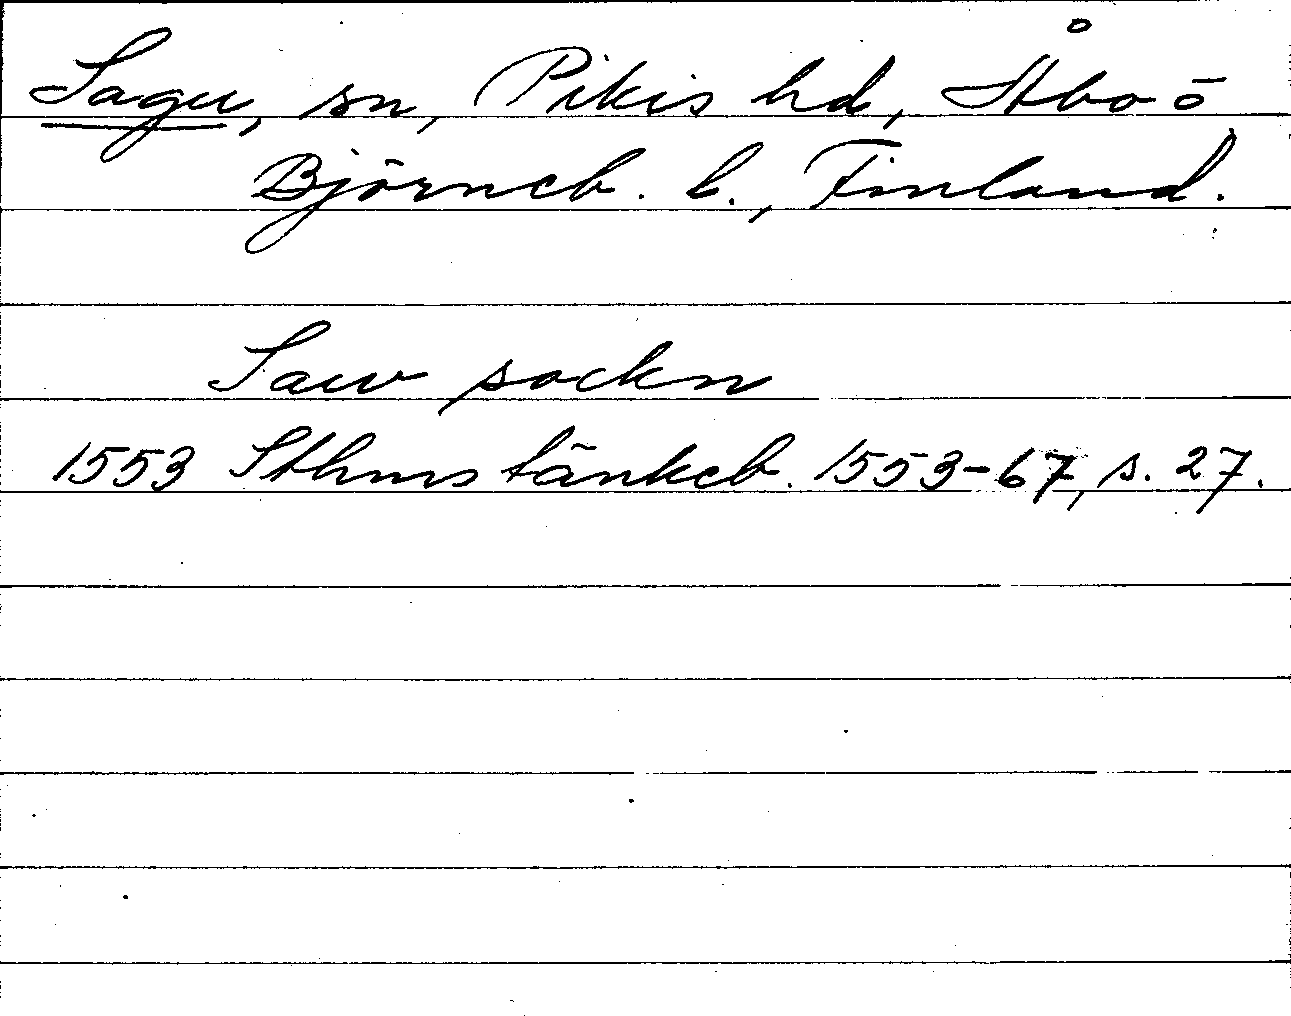 Sagu, sn, Pikis hd, Åbo o
Björneb. l., Finland.
Sauv sockn
1553 Sthms tänkeb. 1553-67, s. 27.